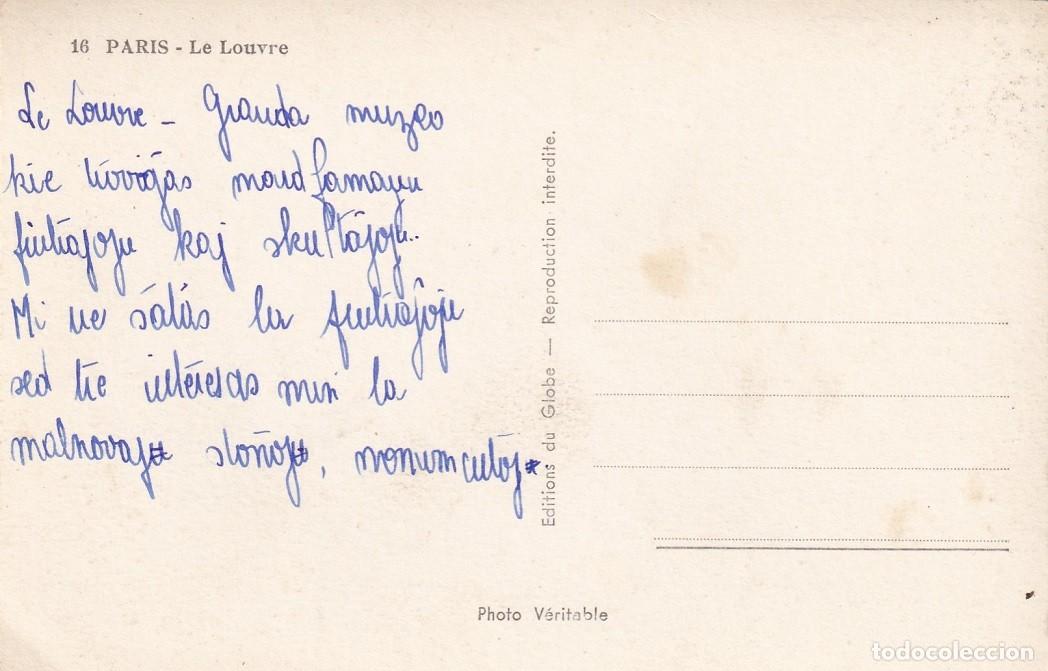 16 PARIS - Le Louvre
Le Louvre - Granda muzeo
kie troviĝas mondfamajn
pintraĵojn kaj skulptaĵojn.
Mi ne ŝatas la pintraĵojn
sed tre interesas min la
malnovaj ŝtonoj, monumentoj.
Editions du Globe — Reproduction interdite.
Photo Véritable
todocoleccion